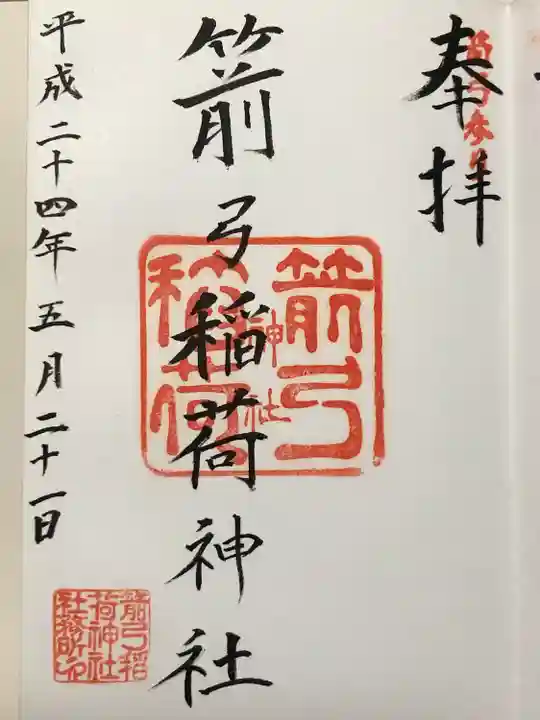 奉拝
箭弓稲荷神社
平成二十四年五月二十一日
箭弓
稲荷
神社
箭弓稲
荷神社
社務所印